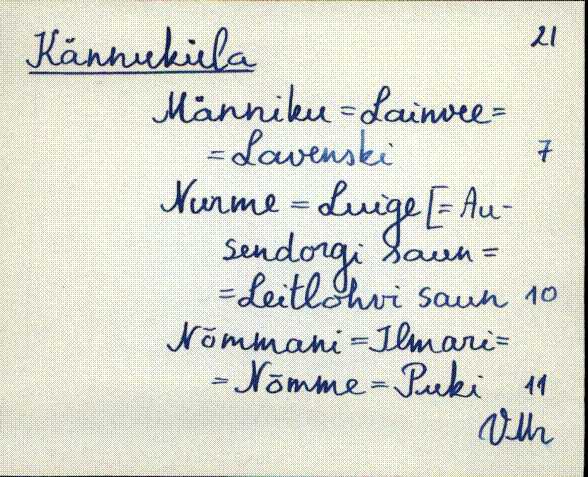 Kännuküla 21
Männiku = Lainvee =
= Lavenski 7
Nurme = Luige [= Au-
sendorgi saun =
= Leitlohvi saun 10
Nõmmani = Ilmari =
= Nõmme = Puki 11